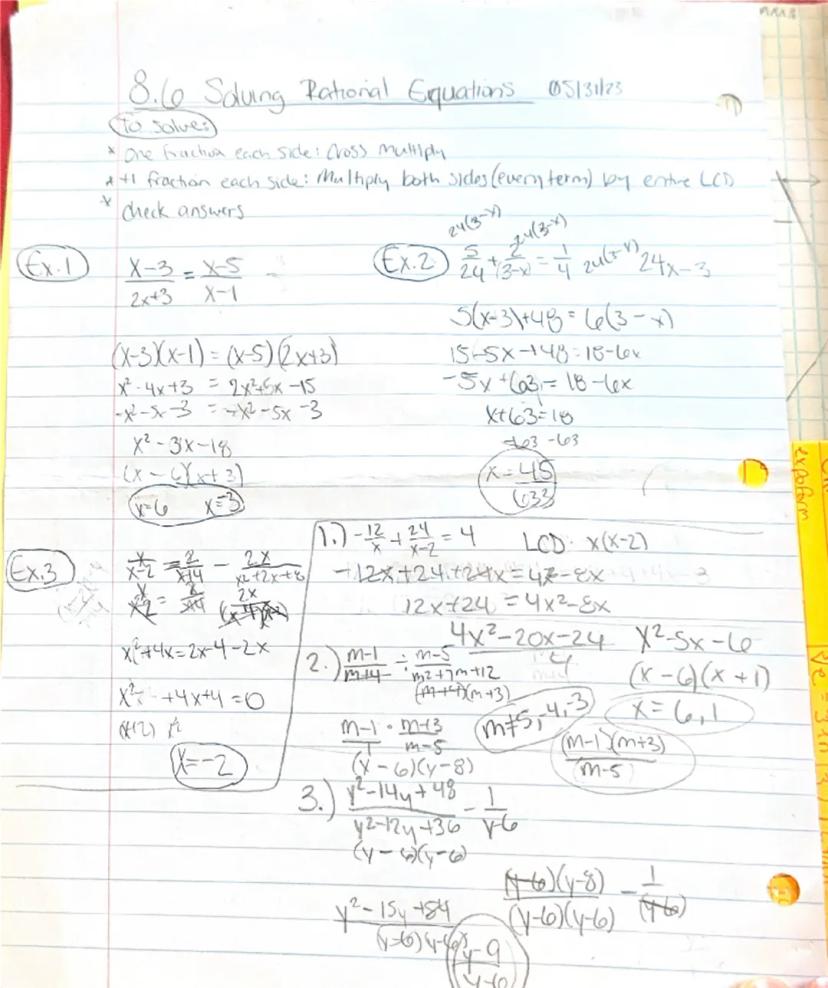 8.6 Solving Rational Equations 05/31/23
To solve:
* One fraction each side: Cross Multiply
* +1 fraction each side: Multiply both sides (every term) by entire LCD
* Check answers
Ex.1
x-3/2x+3 = x-5/x-1
(x-3)(x-1) = (x-5)(2x+3)
x²-4x+3 = 2x²+5x-15
-x²-5x-3 = -x²-5x-3
x²-3x-18
(x-6)(x+3)
x=6 x=-3
Ex.2
24(3-x) 24(3-x)
5/24 + 2/(3-x) = 1/4 24(3-x) 24x-3
5(x-3)+48 = 6(3-x)
15-5x+48 = 18-6x
-5x+63 = 18-6x
x+63=18
-63 -63
x=45/633
Ex.3
x/x-2 = 2/x+4 - 2x/x²+2x+8
x²+4x=2x-4-2x
x² +4x+4=0
(x+2)
x=-2
1.) -12/x + 24/x-2 = 4 LCD: x(x-2)
-12x+24+24x=4x-8x
12x+24 = 4x²-8x
4x²-20x-24
4
x²-5x-6
(x-6)(x+1)
x=6,1
2.) m-1/m+4 ÷ m-5/m²+7m+12
(m+4)(m+3)
m-1/1 · m+3/m-5
m≠5,-4,-3
(m-1)(m+3)/(m-5)
(x-6)(y-8)
3.) y²-14y+48/y²-12y+36 - 1/y-6
(y-6)(y-6)
(y-6)(y-8)/(y-6)(y-6) - 1/(y-6)
y²-15y+84
(y-6)
y-9/y-6